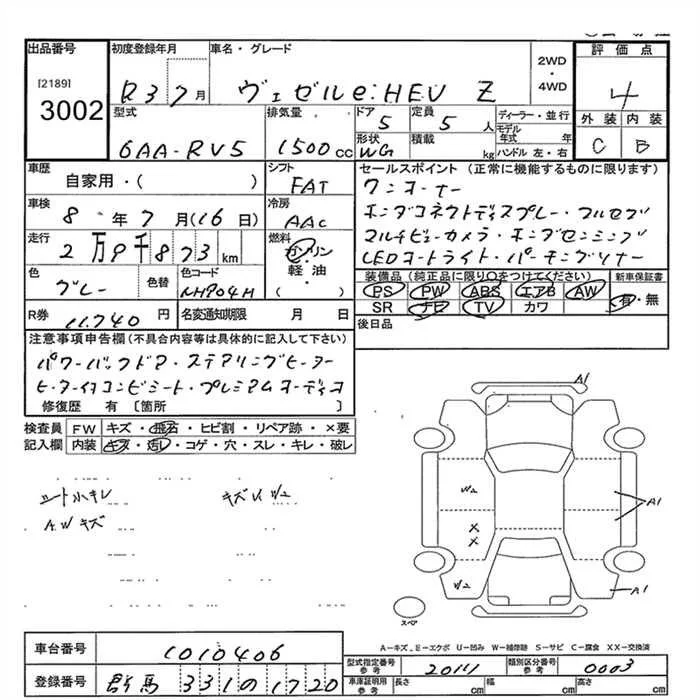 出品番号
[2189]
3002
初度登録年月
R3 7月
車名・グレード
ヴェゼル e:HEV Z
2WD
・
4WD
評価点
4
外装 内装
C B
型式
6AA-RV5
排気量
1500cc
ドア
5
定員
5人
ディーラー・並行
モデル年式 年
ハンドル 左・右
形状
WG
積載
kg
車歴
自家用・( )
シフト
FAT
車検
8年7月(16日)
冷房
AAC
走行
2万9千873km
燃料
ガソリン
・
軽油
( )
色
グレー
色替
色コード
NH904M
R券
11,740円
名変通知期限 月 日
セールスポイント(正常に機能するものに限ります)
ワンオーナー
ホンダコネクトディスプレー・フルセグ
マルチビューカメラ・ホンダセンシング
LEDオートライト・パーキングソナー
装備品(純正品に限り○をつけてください)
PS PW ABS エアB AW
SR ナビ TV カワ
新車保証書
有・無
後日品
注意事項申告欄(不具合内容等は具体的に記入して下さい)
パワーバックドア・ステアリングヒーター
ヒーター付コンビシート・プレミアムオーディオ
修復歴 有 〔箇所 〕
検査員記入欄
FW キズ・飛石・ヒビ割・リペア跡・×要
内装 キズ・汚レ・コゲ・穴・スレ・キレ・破レ
シート小キレ
キズUリュ
A.Wキズ
A1
W2
A1
×
×
W2
A1
スペア
A-キズ E-エクボ U-凹み W-補修跡 S-サビ C-腐食 XX-交換済
車台番号
1010406
登録番号
群馬 331 の 1720
型式指定番号 参考
20141
類別区分番号 参考
0003
車庫証明用 参考
長さ cm
幅 cm
高さ cm